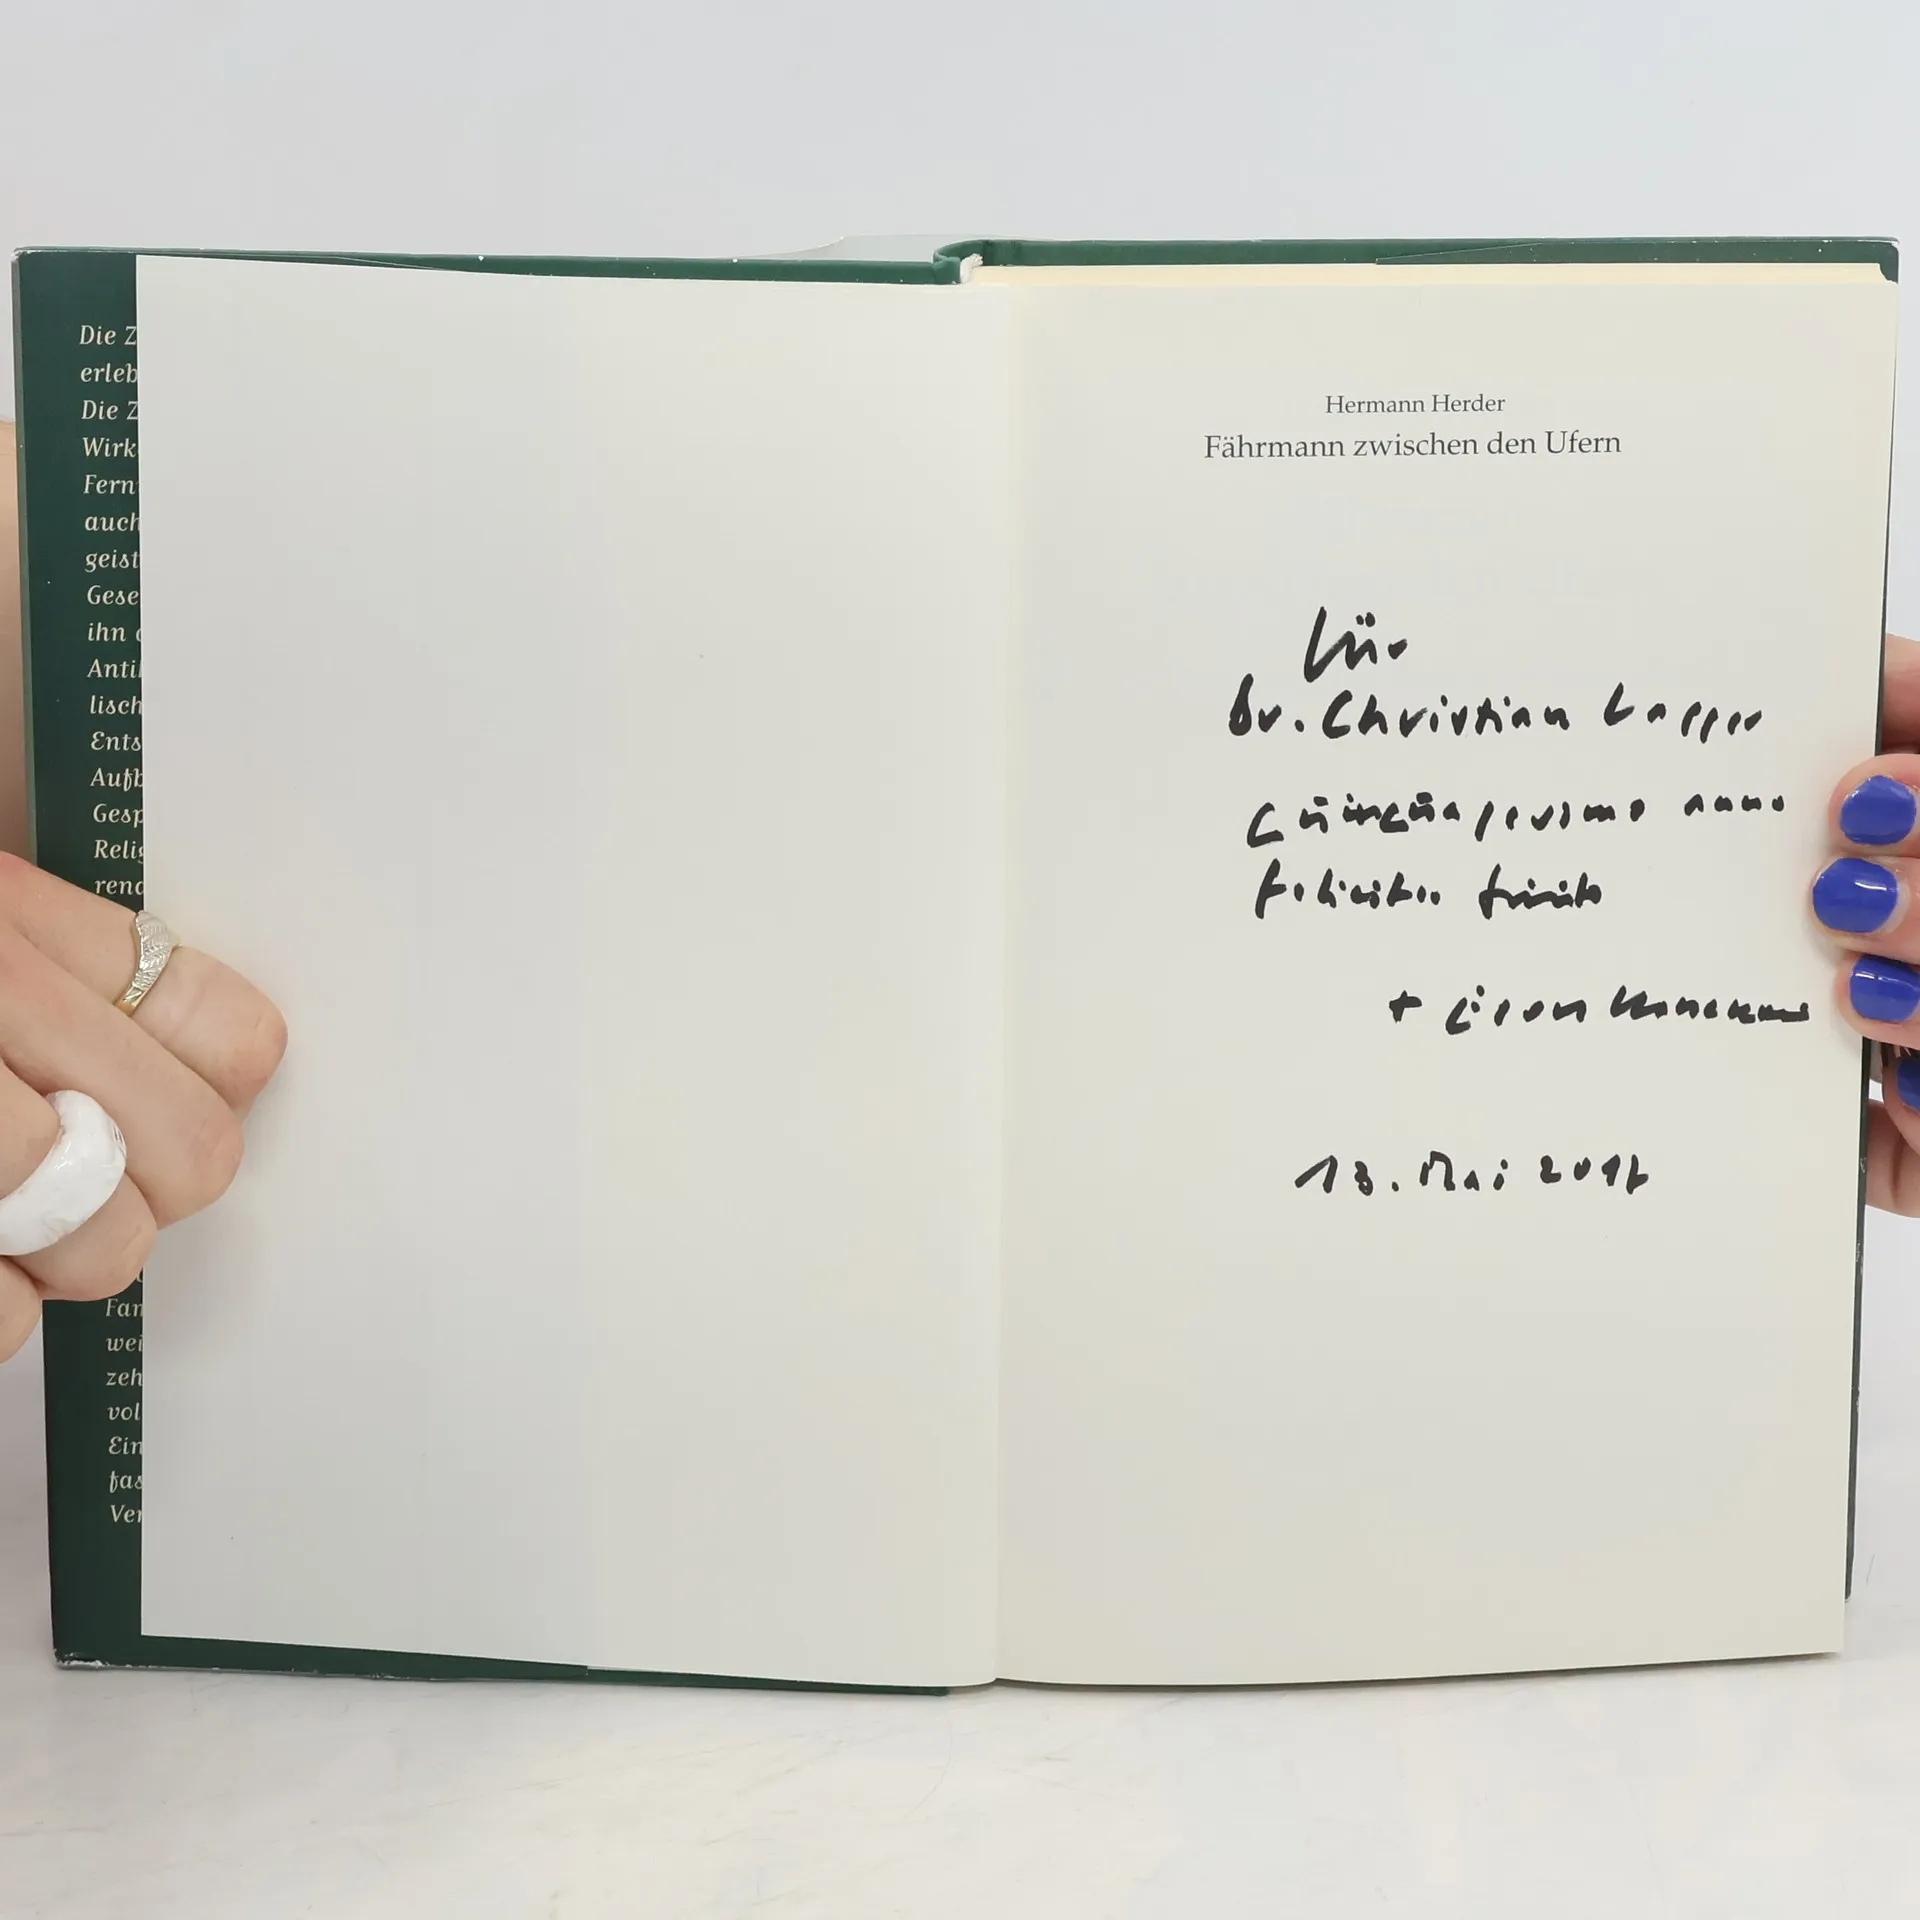 Die Z
erleb
Die Z
Wirk
Fern
auch
geist
Gese
ihn
Anti
lisch
Ents
Aufb
Gesp
Relig
rend
Fam
wei
zeh
vol
Ein
fas
Ver
Hermann Herder
Fährmann zwischen den Ufern
Für
Dr. Christian
anno
feliciter finito
+
13. Mai 201